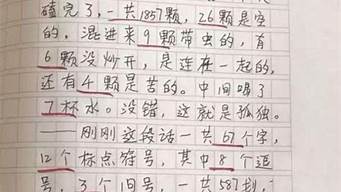 磕完了，一共1857颗，26颗是空
的，混进来9颗带虫的，有
6颗没炒开，是连在一起的，
还有4颗是苦的。中间喝了
7杯水。没错，这就是孤独。
——刚刚这段话一共67个字，
12个标点符号，其中8个逗
号，3个句号，一共587划，